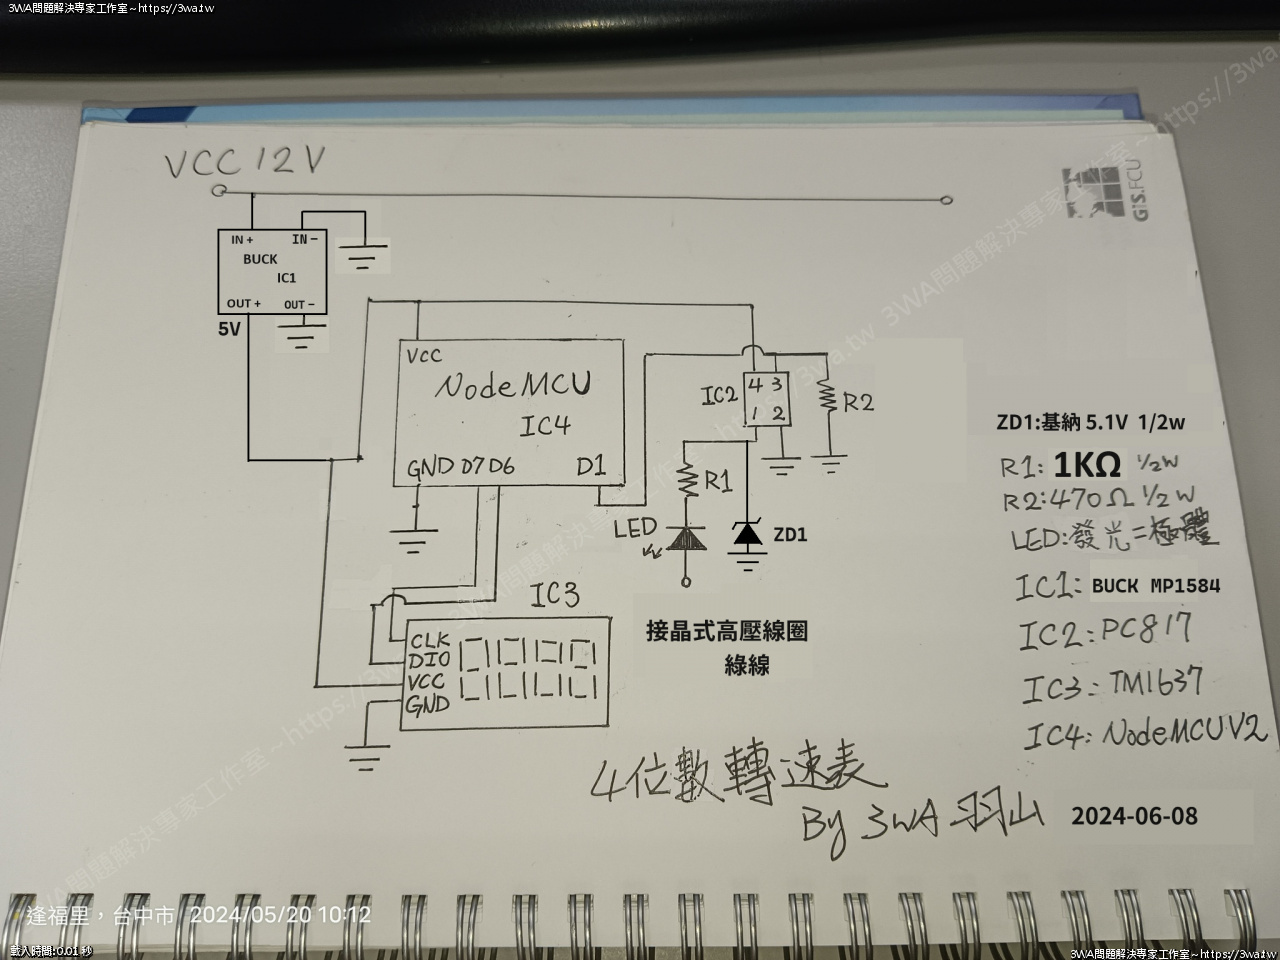 3WA問題解決專家工作室~https://3wa.tw
VCC 12V
GIS.FCU
IN + IN −
BUCK
IC1
OUT + OUT −
5V
VCC
NodeMCU
IC4
GND D7 D6 D1
IC2
4 3
1 2
R2
R1
LED
ZD1
ZD1:基納 5.1V 1/2w
R1: 1KΩ 1/2W
R2:470Ω 1/2W
LED:發光二極體
IC1: BUCK MP1584
IC2:PC817
IC3:TM1637
IC4: NodeMCU V2
IC3
CLK
DIO
VCC
GND
接晶式高壓線圈
綠線
4位數轉速表
By 3WA 羽山
2024-06-08
逢福里，台中市 2024/05/20 10:12
載入時間:0.01 秒
3WA問題解決專家工作室~https://3wa.tw
3WA問題解決專家工作室~https://3wa.tw
3WA問題解決專家工作室~https://3wa.tw